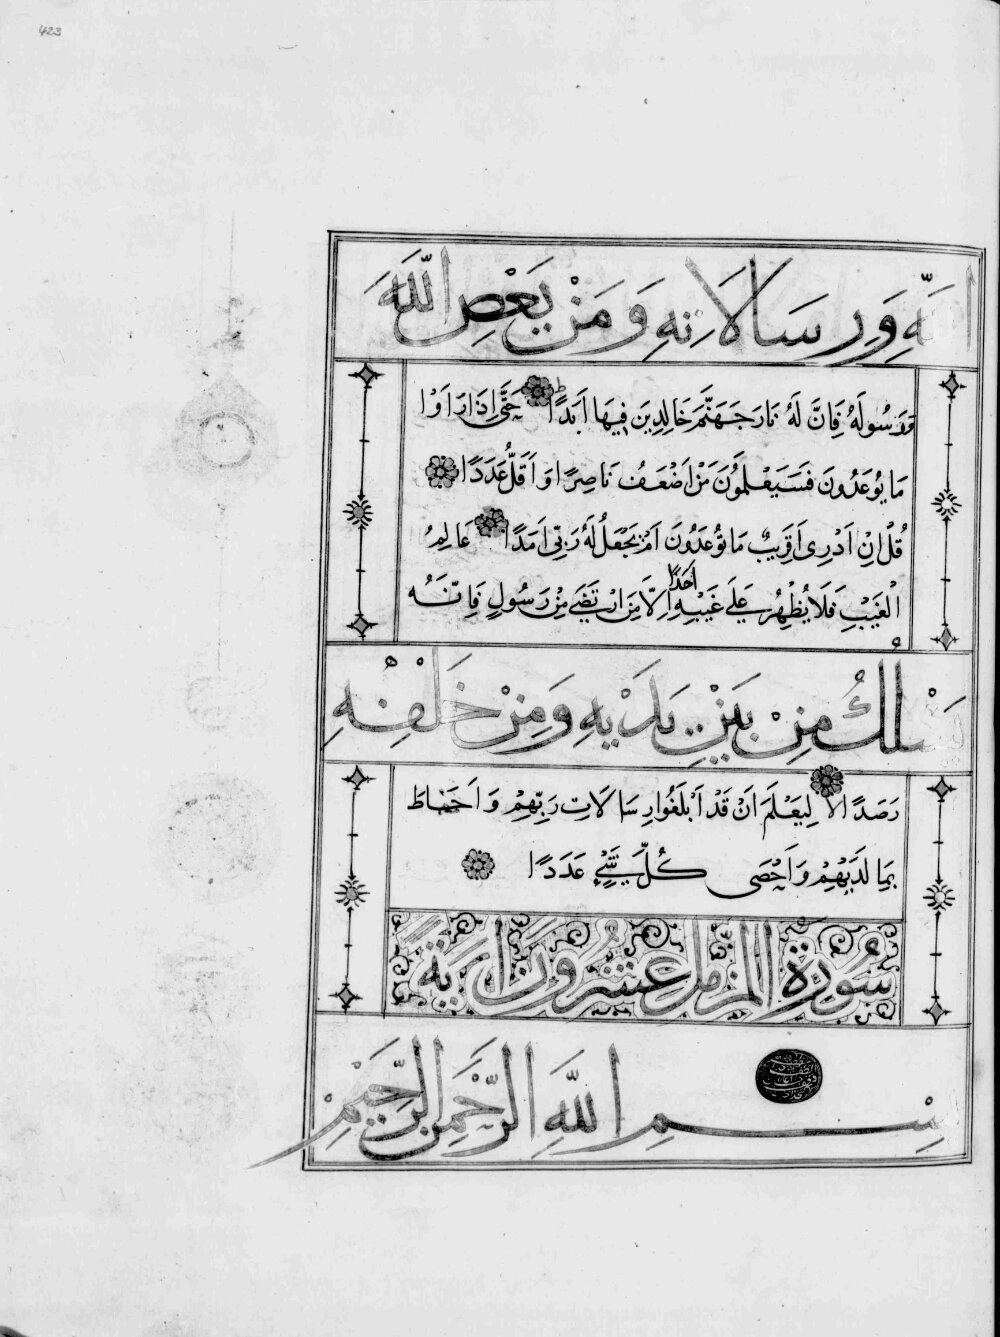 423
اللَّهِ وَرِسَالَاتِهِ وَمَنْ يَعْصِ اللَّهَ
وَرَسُولَهُ فَإِنَّ لَهُ نَارَ جَهَنَّمَ خَالِدِينَ فِيهَا أَبَدًا حَتَّى إِذَا رَأَوْا
مَا يُوعَدُونَ فَسَيَعْلَمُونَ مَنْ أَضْعَفُ نَاصِرًا وَأَقَلُّ عَدَدًا
قُلْ إِنْ أَدْرِي أَقَرِيبٌ مَا تُوعَدُونَ أَمْ يَجْعَلُ لَهُ رَبِّي أَمَدًا عَالِمُ
الْغَيْبِ فَلَا يُظْهِرُ عَلَى غَيْبِهِ أَحَدًا إِلَّا مَنِ ارْتَضَى مِنْ رَسُولٍ فَإِنَّهُ
يَسْلُكُ مِنْ بَيْنِ يَدَيْهِ وَمِنْ خَلْفِهِ
رَصَدًا لِيَعْلَمَ أَنْ قَدْ أَبْلَغُوا رِسَالَاتِ رَبِّهِمْ وَأَحَاطَ
بِمَا لَدَيْهِمْ وَأَحْصَى كُلَّ شَيْءٍ عَدَدًا
سُورَةُ الْمُزَّمِّلِ عِشْرُونَ آيَةً
بِسْمِ اللَّهِ الرَّحْمَنِ الرَّحِيمِ